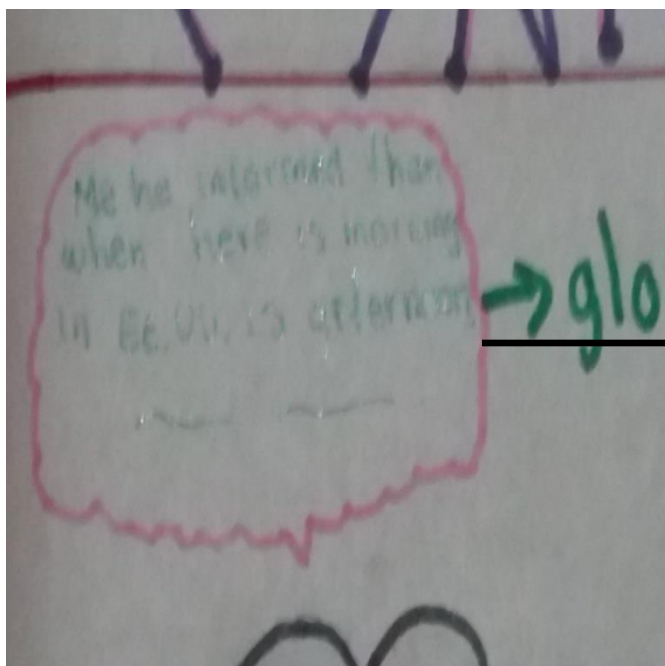 Me he informed than
when here is morning
in EE.UU. is afternoon
→ glo